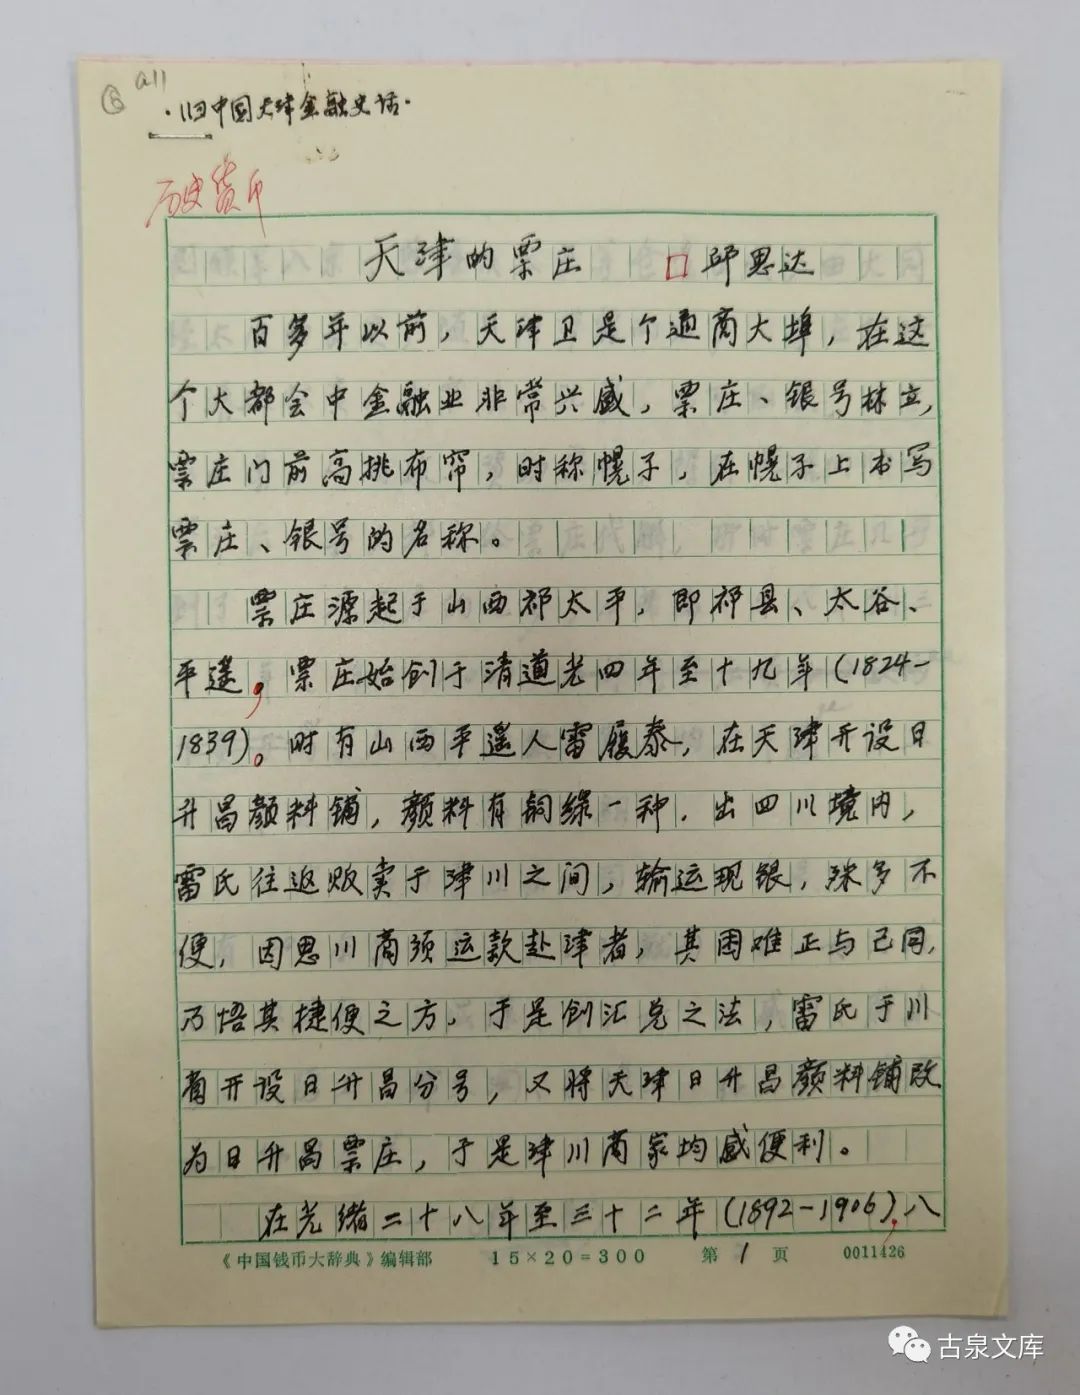 all
·旧中国天津金融史话·
历史货币
天津的票庄 邱思达
百多年以前，天津卫是个通商大埠，在这
个大都会中金融业非常兴盛，票庄、银号林立，
票庄门前高挑布帘，时称幌子，在幌子上书写
票庄、银号的名称。
票庄源起于山西祁太平，即祁县、太谷、
平遥，票庄始创于清道光四年至十九年(1824-
1839)。时有山西平遥人雷履泰，在天津开设日
升昌颜料铺，颜料有铜绿一种，出四川境内，
雷氏往返贩卖于津川之间，输运现银，殊多不
便，因思川商须运款赴津者，其困难正与己同，
乃悟其捷便之方，于是创汇兑之法，雷氏于川
省开设日升昌分号，又将天津日升昌颜料铺改
为日升昌票庄，于是津川商家均感便利。
在光绪二十八年至三十二年(1892-1906)，八
《中国钱币大辞典》编辑部 15×20=300 第1页 0011426
古泉文库